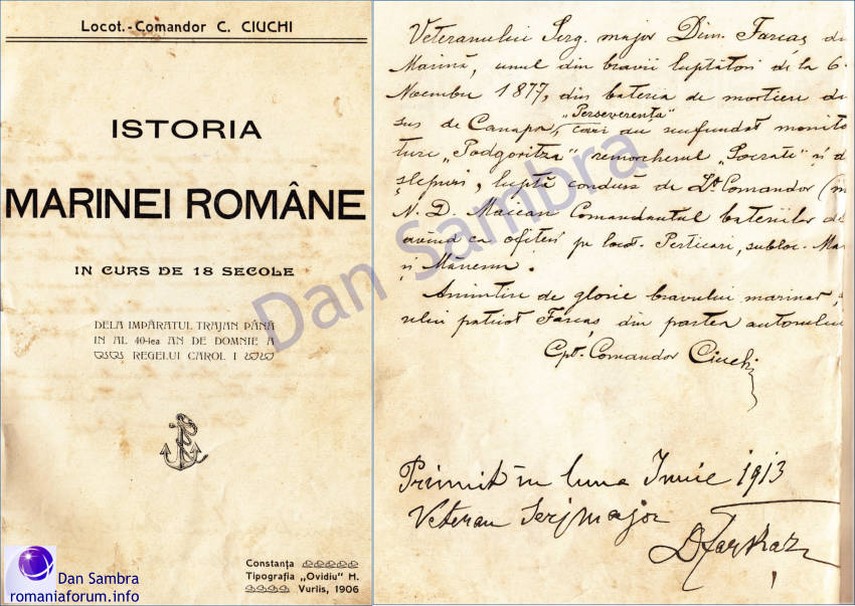 Locot.-Comandor C. CIUCHI
ISTORIA
MARINEI ROMÂNE
IN CURS DE 18 SECOLE
DELA IMPĂRATUL TRAJAN PÂNĂ
IN AL 40-lea AN DE DOMNIE A
REGELUI CAROL I
Constanța
Tipografia „Ovidiu" H.
Vurlis, 1906
Dan Sambra
romaniaforum.info
Veteranului Serg. major Dim. Farcaș
Marină, unul din bravii luptători de la 6
Noembre 1877, din bateria de mortiere de
„Perseverența"
sus de Canapa, cari au scufundat
ture „Podgoritza" remorcherul „Socrate" și
șlepuri, luptă condusă de Lt Comandor
N. D. Măican Comandantul bateriilor de
având ca ofițeri pe locot. Perticari, subloc.
și Mănescu.
Amintire de glorie bravului marinar,
patriot Farcaș din partea autorului
Cpt. Comandor Ciuchi
Primit în luna Iunie 1913
Veteran Serjmajor
DFarkaz
Dan Sambra